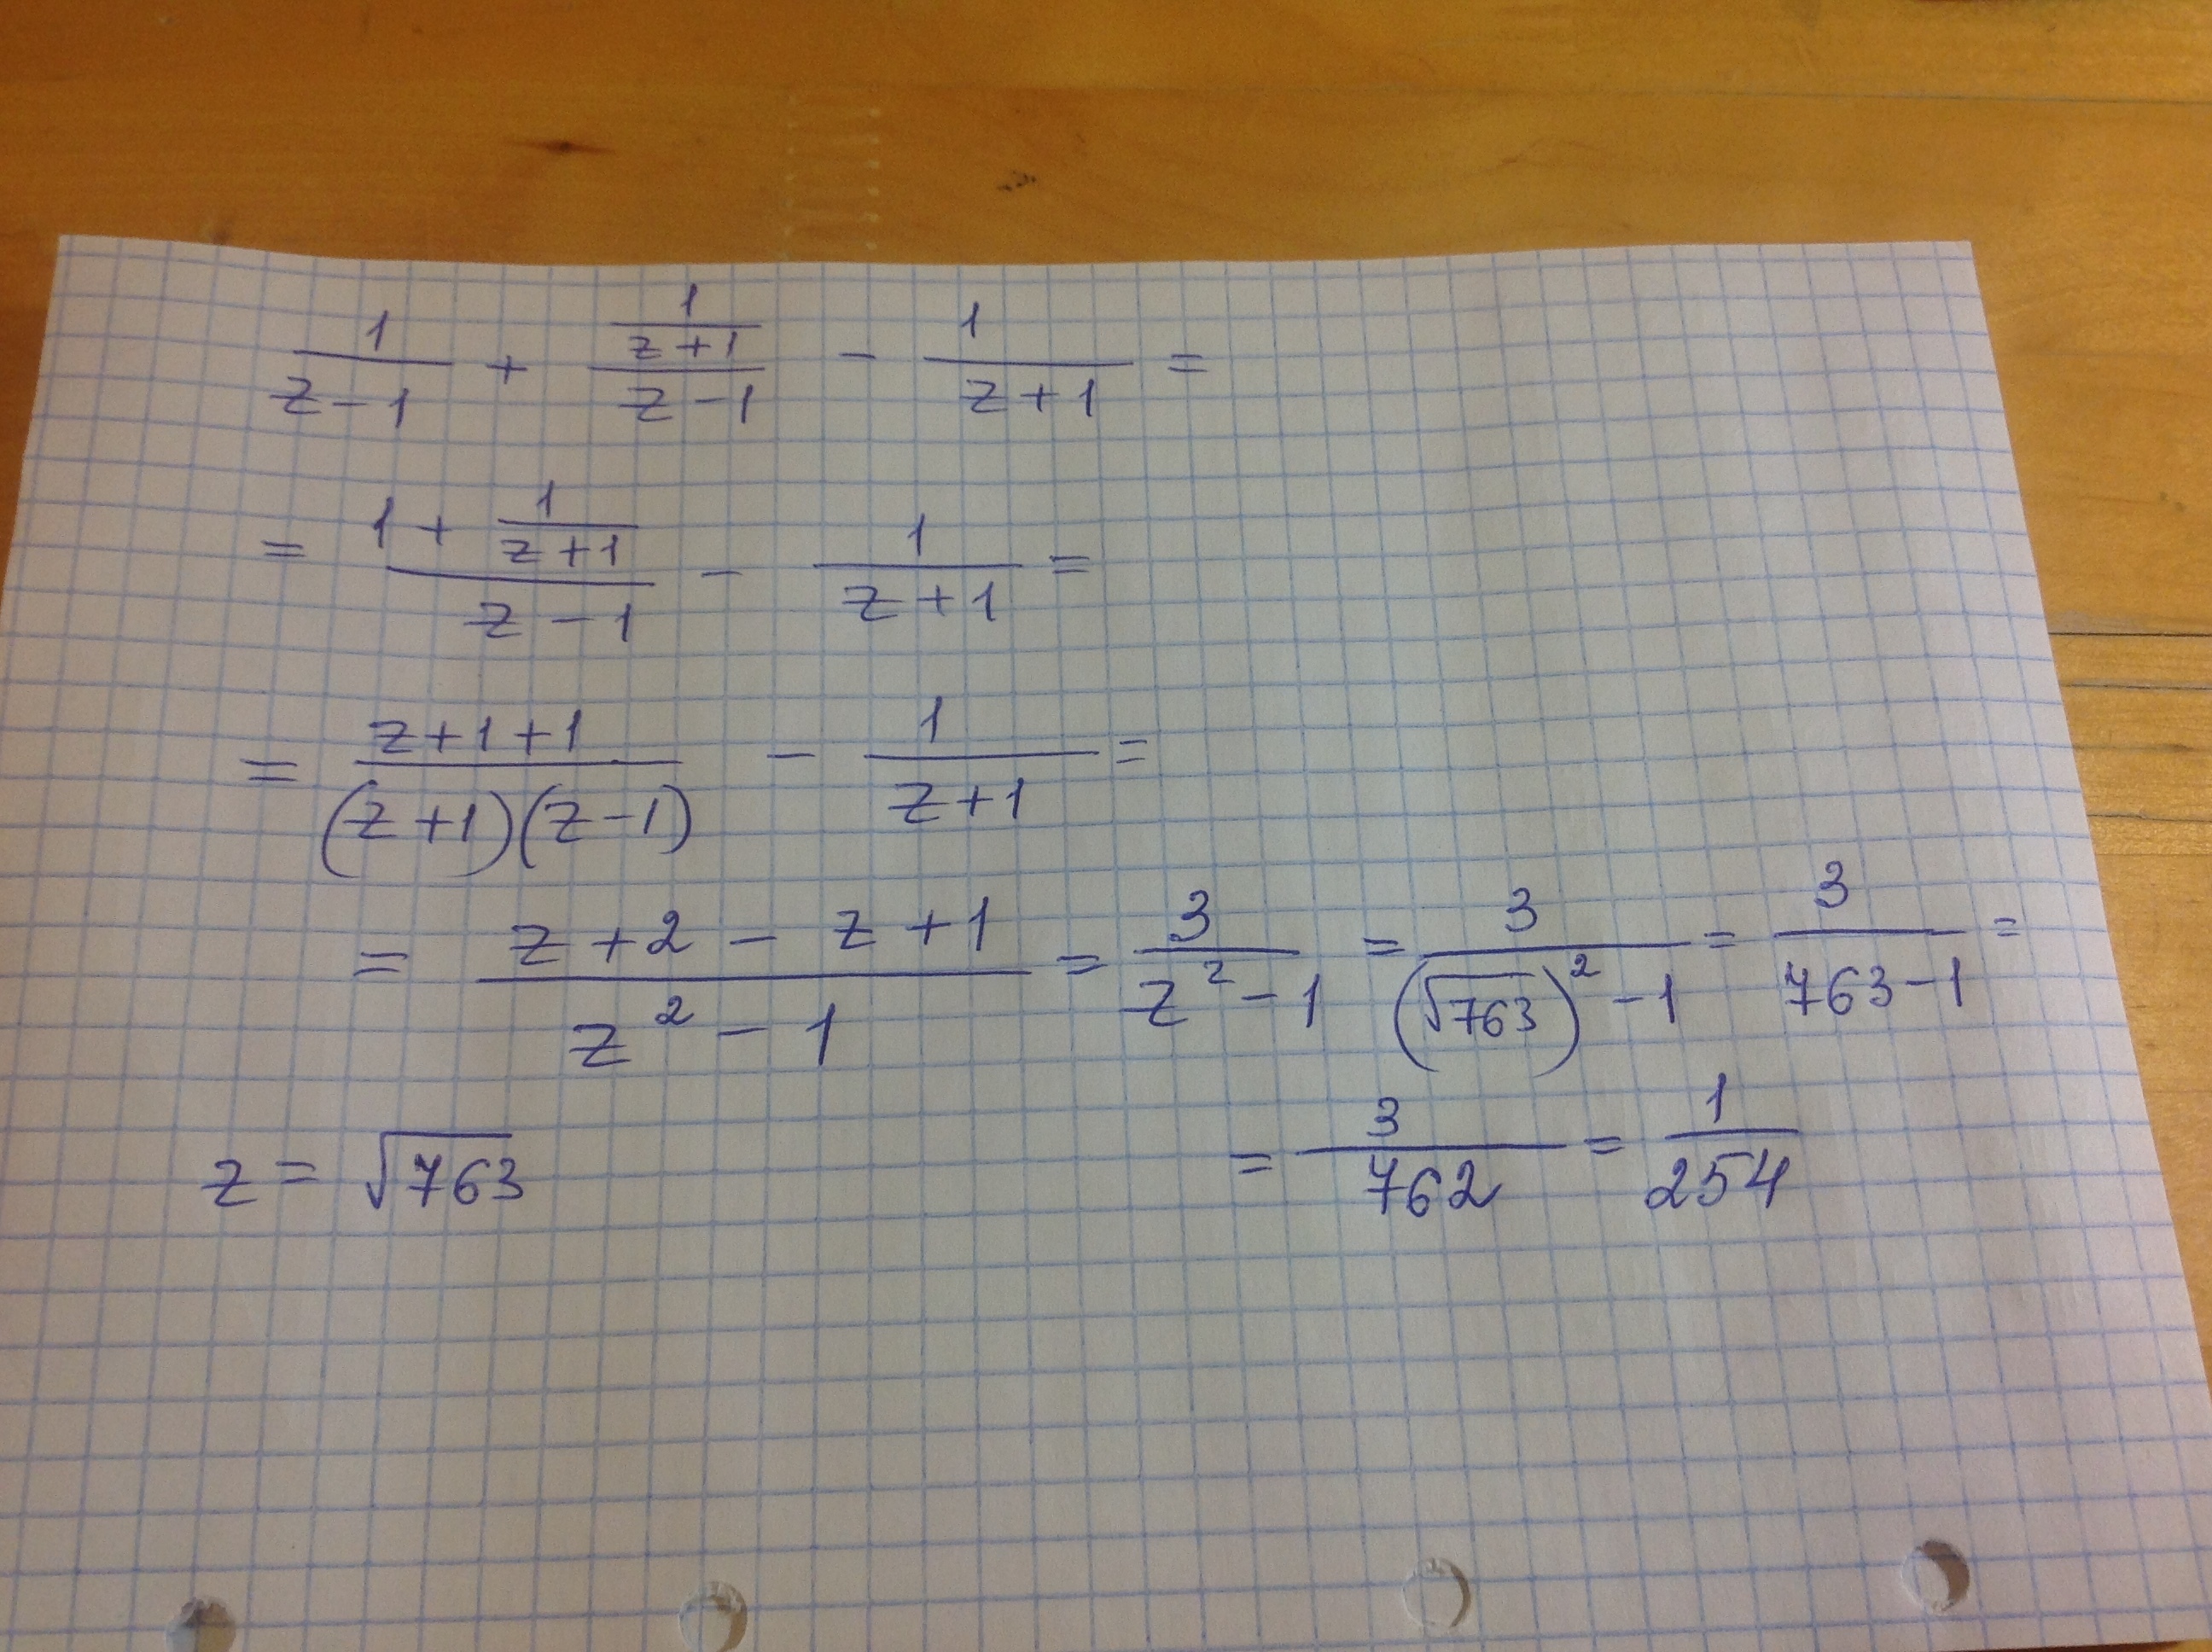 1/(z-1) + (1/(z+1))/(z-1) - 1/(z+1) =
= (1 + 1/(z+1))/(z-1) - 1/(z+1) =
= (z+1+1)/((z+1)(z-1)) - 1/(z+1) =
= (z+2-z+1)/(z²-1) = 3/(z²-1) = 3/((√763)²-1) = 3/(763-1) =
z = √763
= 3/762 = 1/254